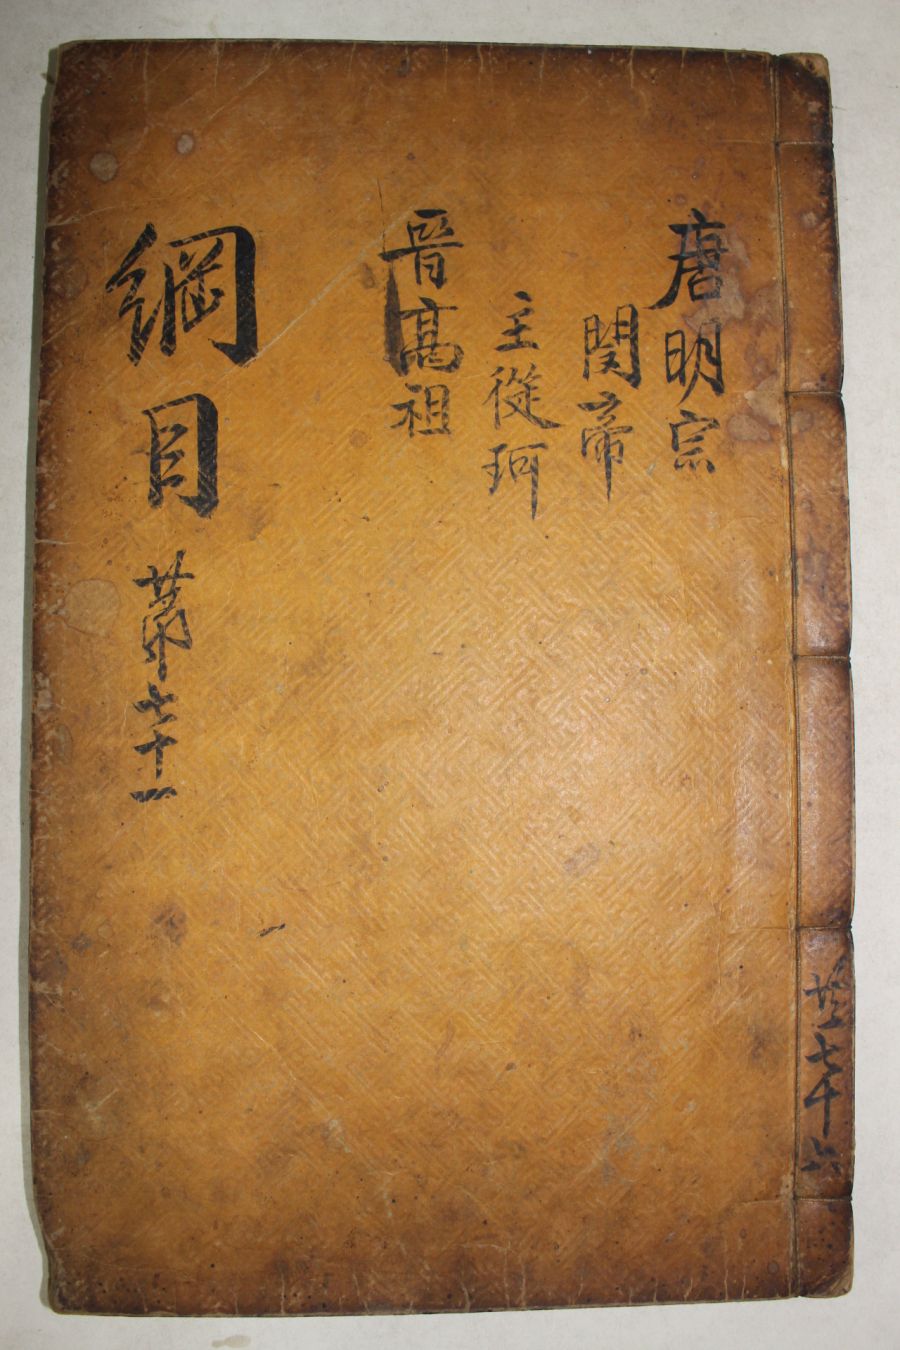 唐明宗
閔帝
主從珂
晉高祖
綱目 苐七十一
共七十六